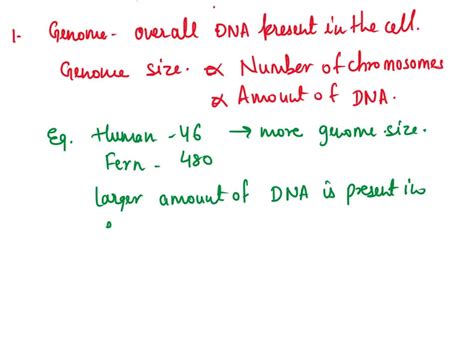 1- Genome - overall DNA present in the cell.
Genome size. ∝ Number of chromosomes
∝ Amount of DNA.
Eg. Human - 46 → more genome size.
Fern - 480
larger amount of DNA is present in